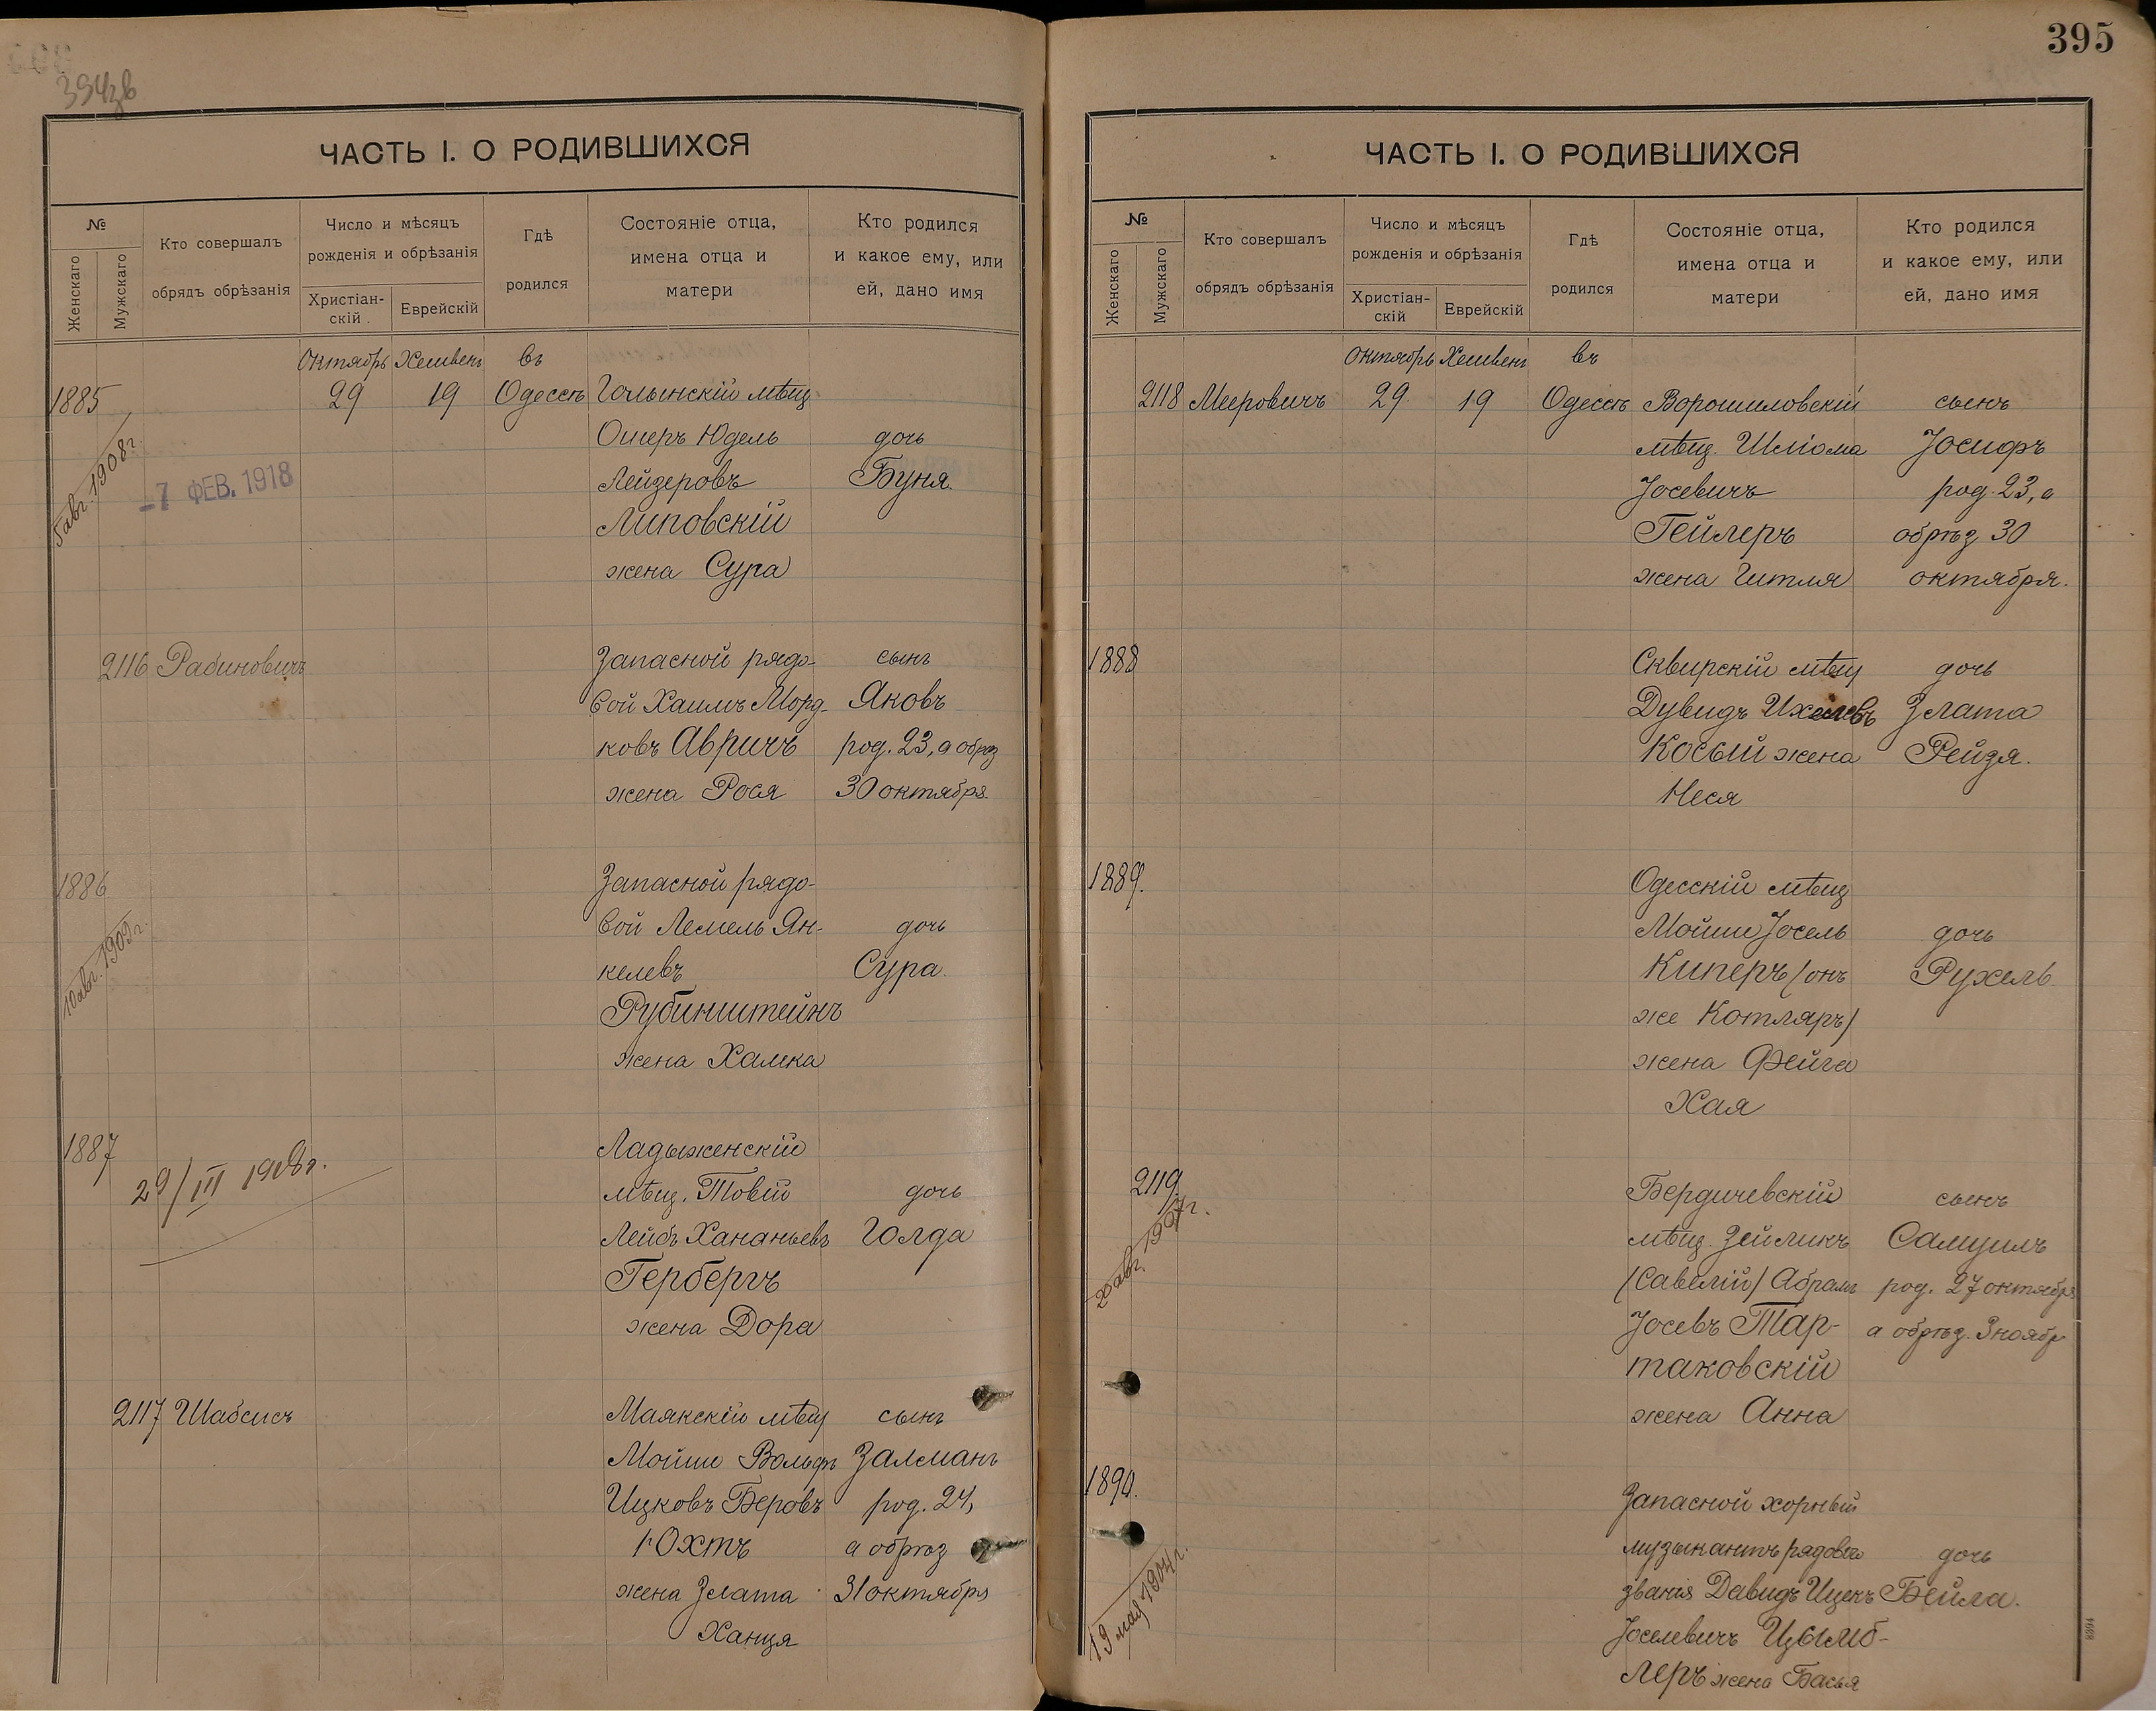 394зв
ЧАСТЬ I. О РОДИВШИХСЯ
№
Женскаго
Мужскаго
Кто совершалъ
обрядъ обрѣзанія
Число и мѣсяцъ
рожденія и обрѣзанія
Христіан-
скій
Еврейскій
Гдѣ
родился
Состояніе отца,
имена отца и
матери
Кто родился
и какое ему, или
ей, дано имя
Октябрь Хешвенъ въ
1885 29 19 Одессѣ Голынскій мѣщ.
Ошеръ Юдель дочь
5 авг. 1908 г. -7 ФЕВ. 1918 Лейзеровъ Буня
Липовскій
жена Сура
2116 Рабиновичъ Запасной рядо- сынъ
вой Хаимъ Морд- Яковъ
ковъ Авричъ род. 23, а обрѣз
жена Рося 30 октября
1886 Запасной рядо-
вой Лемель Ян- дочь
10 авг. 1909 г. келевъ Сура.
Рубинштейнъ
жена Хамка
1887 Ладыженскій
29/III 1908 г. мѣщ. Товій дочь
Лейбъ Хананьевъ Голда
Гербергъ
жена Дора
2117 Шабсисъ Маякскій мѣщ сынъ
Мойше Вольфъ Залманъ
Ицковъ Беровъ род. 24,
Юхтъ а обрѣз
жена Злата 31 октября
Ханця
395
ЧАСТЬ I. О РОДИВШИХСЯ
№
Женскаго
Мужскаго
Кто совершалъ
обрядъ обрѣзанія
Число и мѣсяцъ
рожденія и обрѣзанія
Христіан-
скій
Еврейскій
Гдѣ
родился
Состояніе отца,
имена отца и
матери
Кто родился
и какое ему, или
ей, дано имя
Октябрь Хешвенъ въ
2118 Мееровичъ 29 19 Одессѣ Ворошиловскій сынъ
мѣщ. Шліома Іосифъ
Іосевичъ род. 23, а
Гейлеръ обрѣз 30
жена Гитля октября.
1888 Сквирскій мѣщ дочь
Дувидъ Ихелевъ Злата
Косый жена Рейзя.
Неся
1889. Одесскій мѣщ
Мойше Іосель дочь
Киперъ (онъ Рухель
же Котляръ)
жена Фейга
Хая
2119 Бердичевскій сынъ
20 авг. 1907 г. мѣщ. Зейликъ Самуилъ
(Савелій) Абрамъ род. 27 октября
Іосевъ Тар- а обрѣз. 3 ноябр
таковскій
жена Анна
1890. Запасной хорный
музыкантъ рядового дочь
19 мая 1914 г. званія Давидъ Ицекъ Бейла.
Іоселевичъ Цымб-
леръ жена Басья